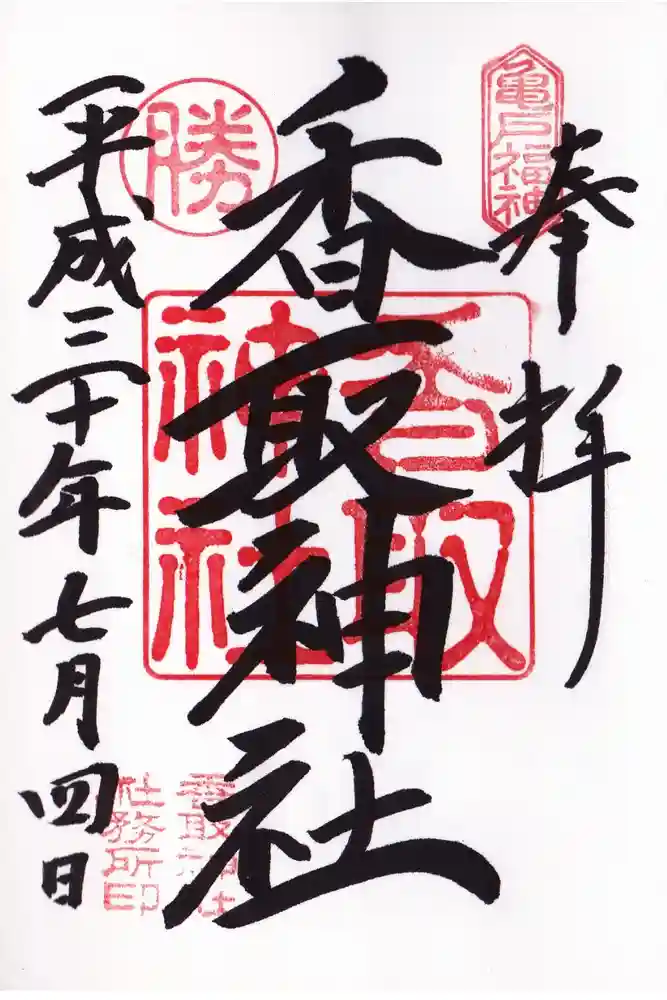 亀戸福神
奉拝
香取神社
香取
神社
勝
香取神社
社務所印
平成三十年七月四日